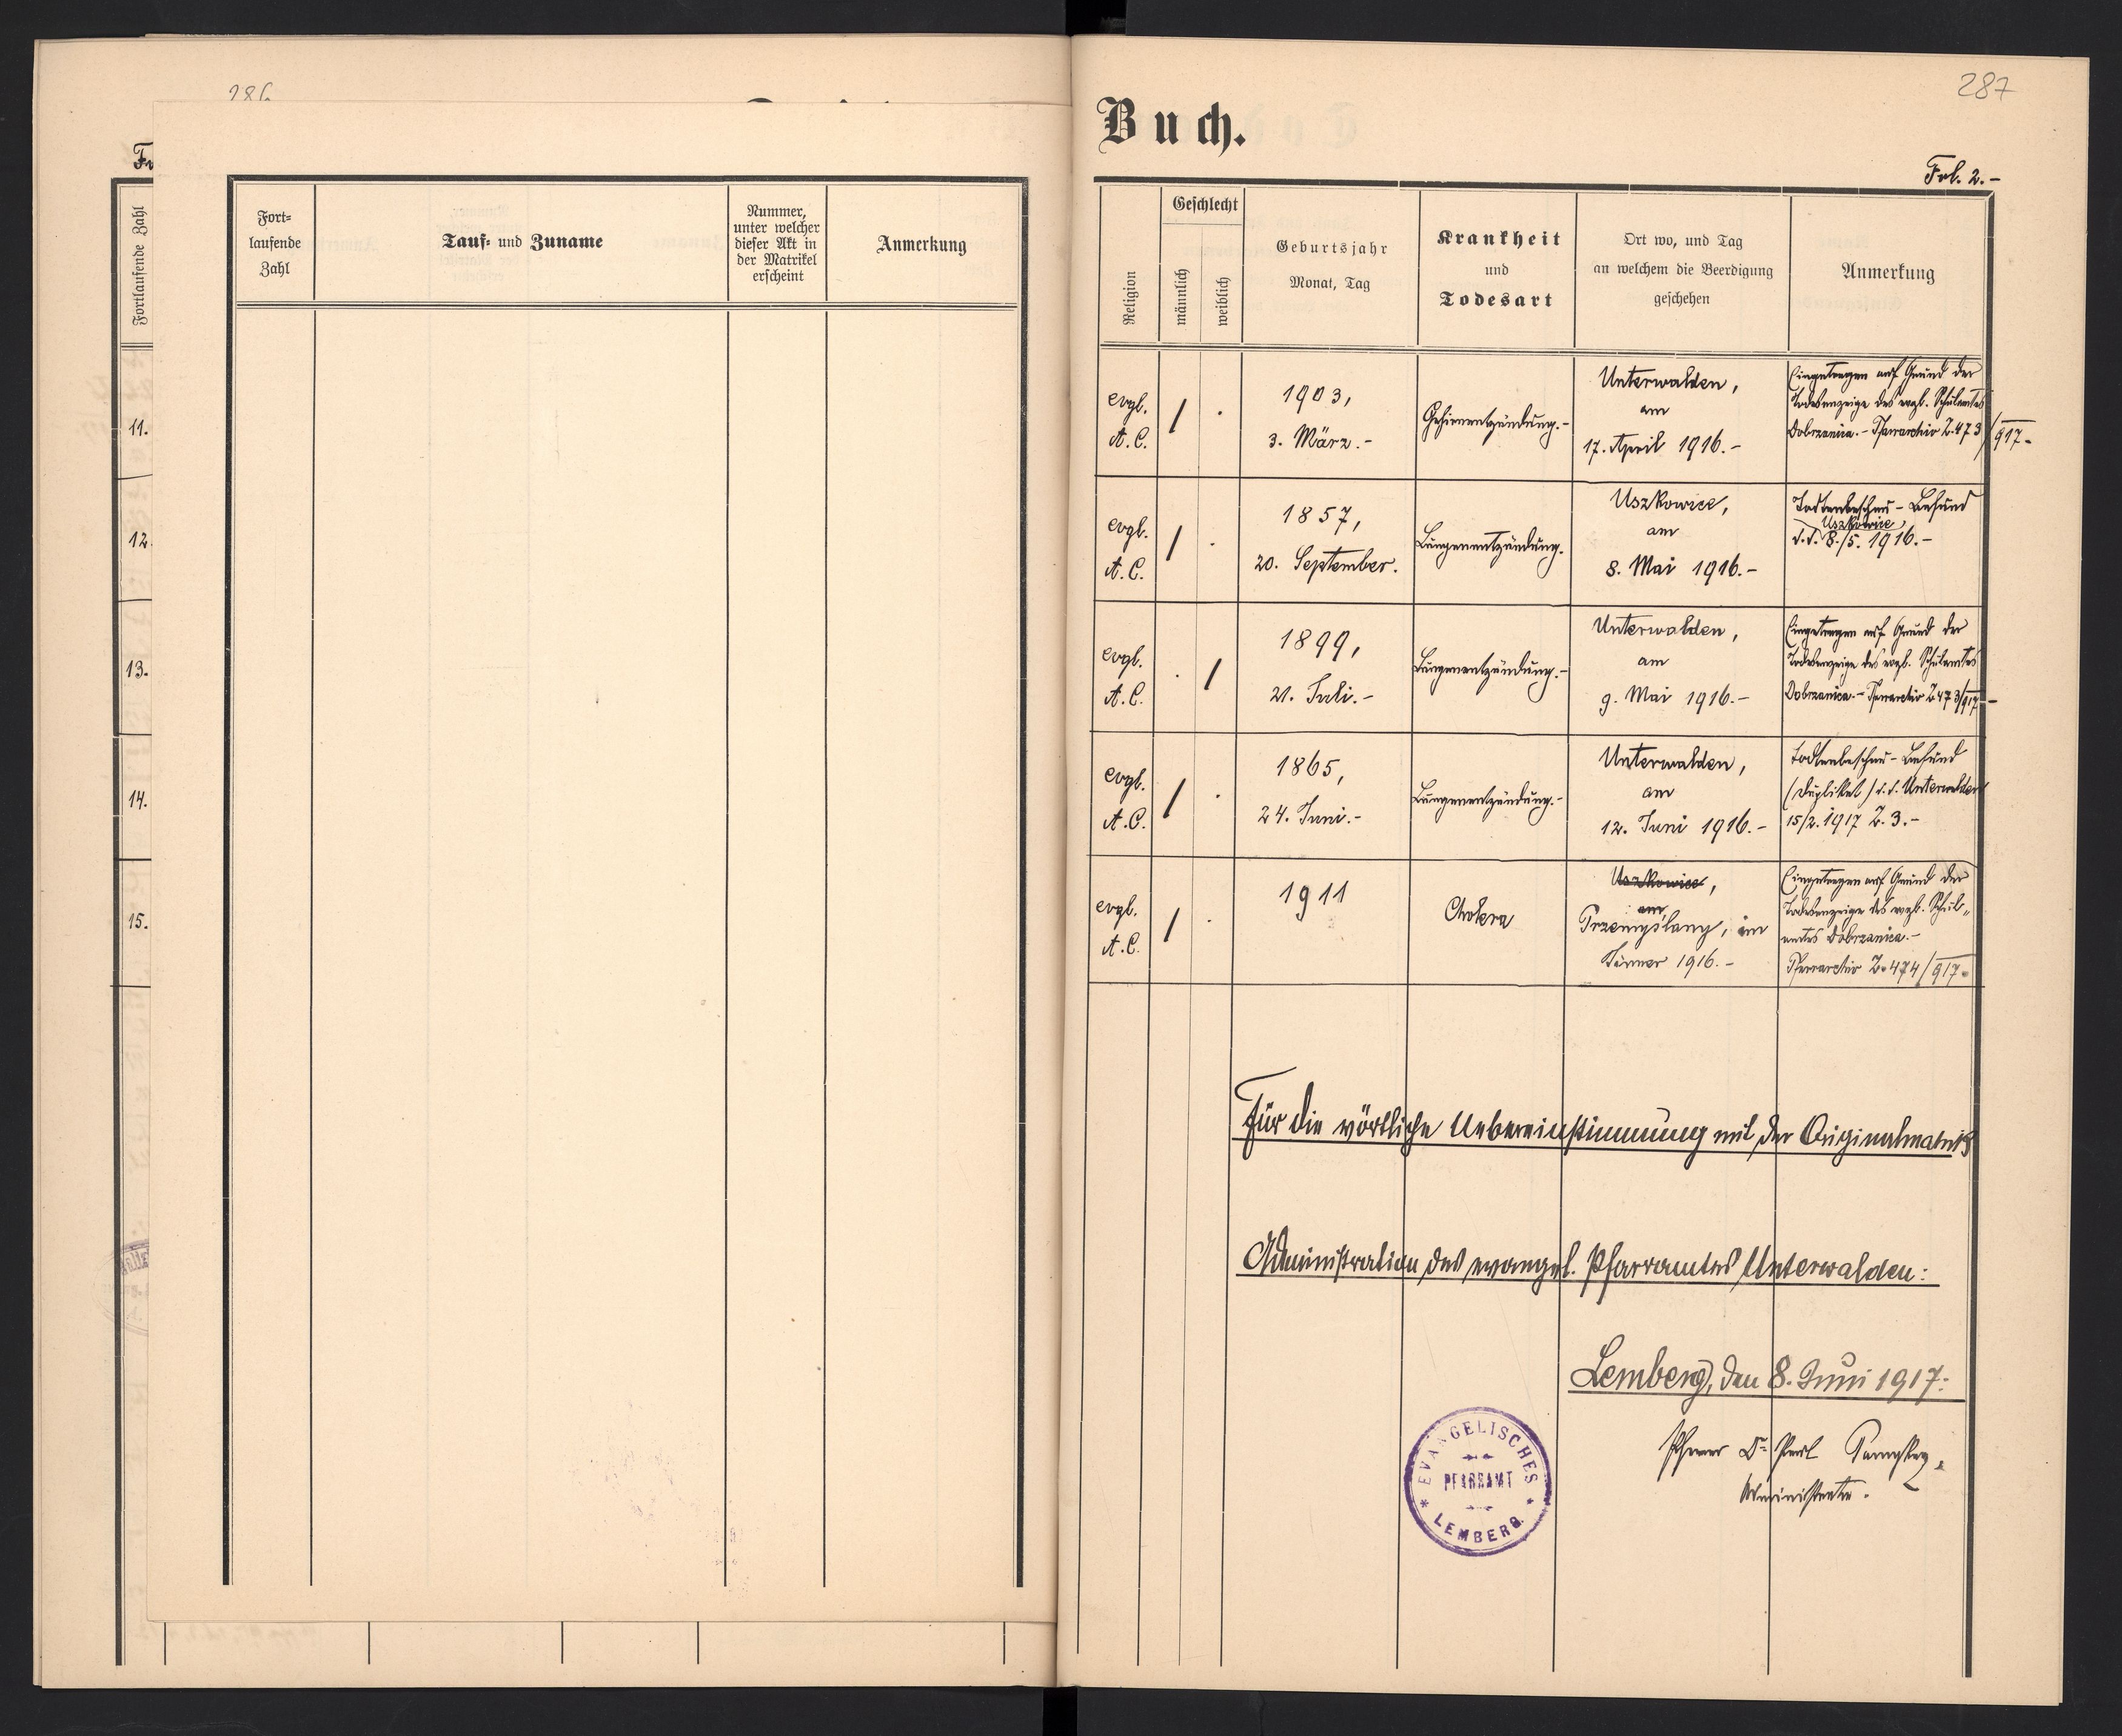 286
Fort-
laufende
Zahl
Tauf- und Zuname
Nummer,
unter welcher
dieser Akt in
der Matrikel
erscheint
Anmerkung
Fortlaufende Zahl
11.
12.
13.
14.
15.
287
Buch.
Fol. 2.-
Religion
Geschlecht
männlich
weiblich
Geburtsjahr
Monat, Tag
Krankheit
und
Todesart
Ort wo, und Tag
an welchem die Beerdigung
geschehen
Anmerkung
evgl.
A.C.
1903,
3. März.-
Gehirnentzündung.-
Unterwalden,
am
17. April 1916.-
Eingetragen auf Grund der
Todesanzeige des evgl. Schulamtes
Dobrzanica.- Pfarrarchiv Z.473/917-
evgl.
A.C.
1857,
20. September.
Lungenentzündung.
Uszkowice,
am
8. Mai 1916.-
Todtenbeschau-Befund
Uszkowice,
d.d. 8./5. 1916.-
evgl.
A.C.
1899,
21. Juli.-
Lungenentzündung.-
Unterwalden,
am
9. Mai 1916.-
Eingetragen auf Grund der
Todesanzeige des evgl. Schulamtes
Dobrzanica.- Pfarrarchiv Z.473/917-
evgl.
A.C.
1865,
24. Juni.-
Lungenentzündung.-
Unterwalden,
am
12. Juni 1916.-
Todtenbeschau-Befund
(Duplikat) d.d. Unterwalden
15/2.1917 Z.3.-
evgl.
A.C.
1911
Cholera
Uszkowice,
am
Przemyślany, im
Jänner 1916.-
Eingetragen auf Grund der
Todesanzeige des evgl. Schul-
amtes Dobrzanica.-
Pfarrarchiv Z.474/917-
Für die wörtliche Uebereinstimmung mit der Originalmatrik
Administration des evangel. Pfarramtes Unterwalden:
Lemberg, den 8. Juni 1917:
EVANGELISCHES
PFARRAMT
LEMBERG.
Pfarrer Dr Paul
Administrator.